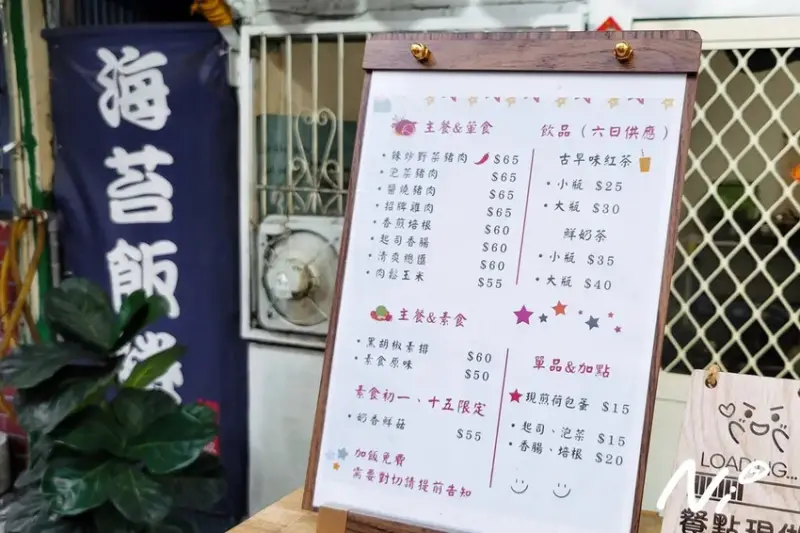 海苔飯
主餐&葷食
• 辣炒野菜豬肉 $65
• 泡菜豬肉 $65
• 醬燒豬肉 $65
• 招牌雞肉 $65
• 香煎培根 $60
• 起司香腸 $60
• 清爽總匯 $60
• 肉鬆玉米 $55
飲品（六日供應）
古早味紅茶
• 小瓶 $25
• 大瓶 $30
鮮奶茶
• 小瓶 $35
• 大瓶 $40
主餐&素食
• 黑胡椒素排 $60
• 素食原味 $50
素食初一、十五限定
• 奶香鮮菇 $55
加飯免費
需要對切請提前告知
單品&加點
現煎荷包蛋 $15
• 起司、泡菜 $15
• 香腸、培根 $20
LOADING...
餐點現做